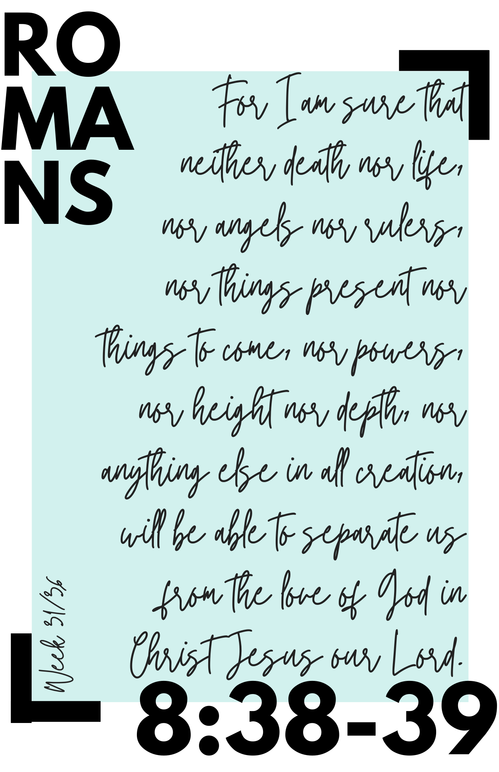 RO
MA
NS
For I am sure that
neither death nor life,
nor angels nor rulers,
nor things present nor
things to come, nor powers,
nor height nor depth, nor
anything else in all creation,
will be able to separate us
from the love of God in
Christ Jesus our Lord.
Week 31/36
8:38-39